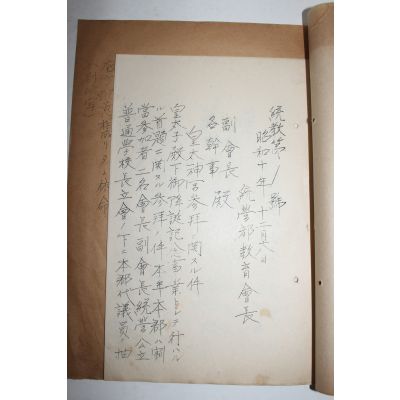 統教第 號
昭和十年 十二月八日
統營郡教育會長
副會長
各幹事 殿
皇太神宮參拜ニ關スル件
皇太子殿下御降誕記念事業トシテ行ハル
ル首題ニ關スル參拜ノ件本年本郡ハ割
當參加者二名會長副會長統營公立
普通學校長立會ノ下ニ本郡代議員ハ抽